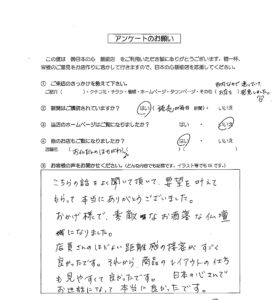 アンケートのお願い
この度は ㈱日本の心 飾磨店 をご利用いただき誠にありがとうございます。精一杯、
皆様のご意見をお店作りに活かして行きますので、日本の心飾磨店を応援してください。
① ご来店のきっかけを教えて下さい。
ご紹介( )・クチコミ・チラシ・看板・ホームページ・タウンページ・その他(
② 新聞はご購読されていますか? はい( 読売 新聞)・ いいえ
③ 当店のホームページはご覧になりましたか? はい ・ いいえ
④ 他のお店もご覧になりましたか? はい ・ いいえ
⑤ お客様の声をお聞かせください。(どんな内容でも結構です。イラスト等でもOKです。)
こちらの話をよく聞いて頂いて、要望を叶えて
もらって本当にありがとうございました。
おかげ様で、素敵なお洒落な仏壇
になりました。
店員さんのほどよい距離感の接客がすごく
良かったです。それから商品のレイアウトの仕方
も見やすくて良かったです。
お世話になって本当に良かったです。